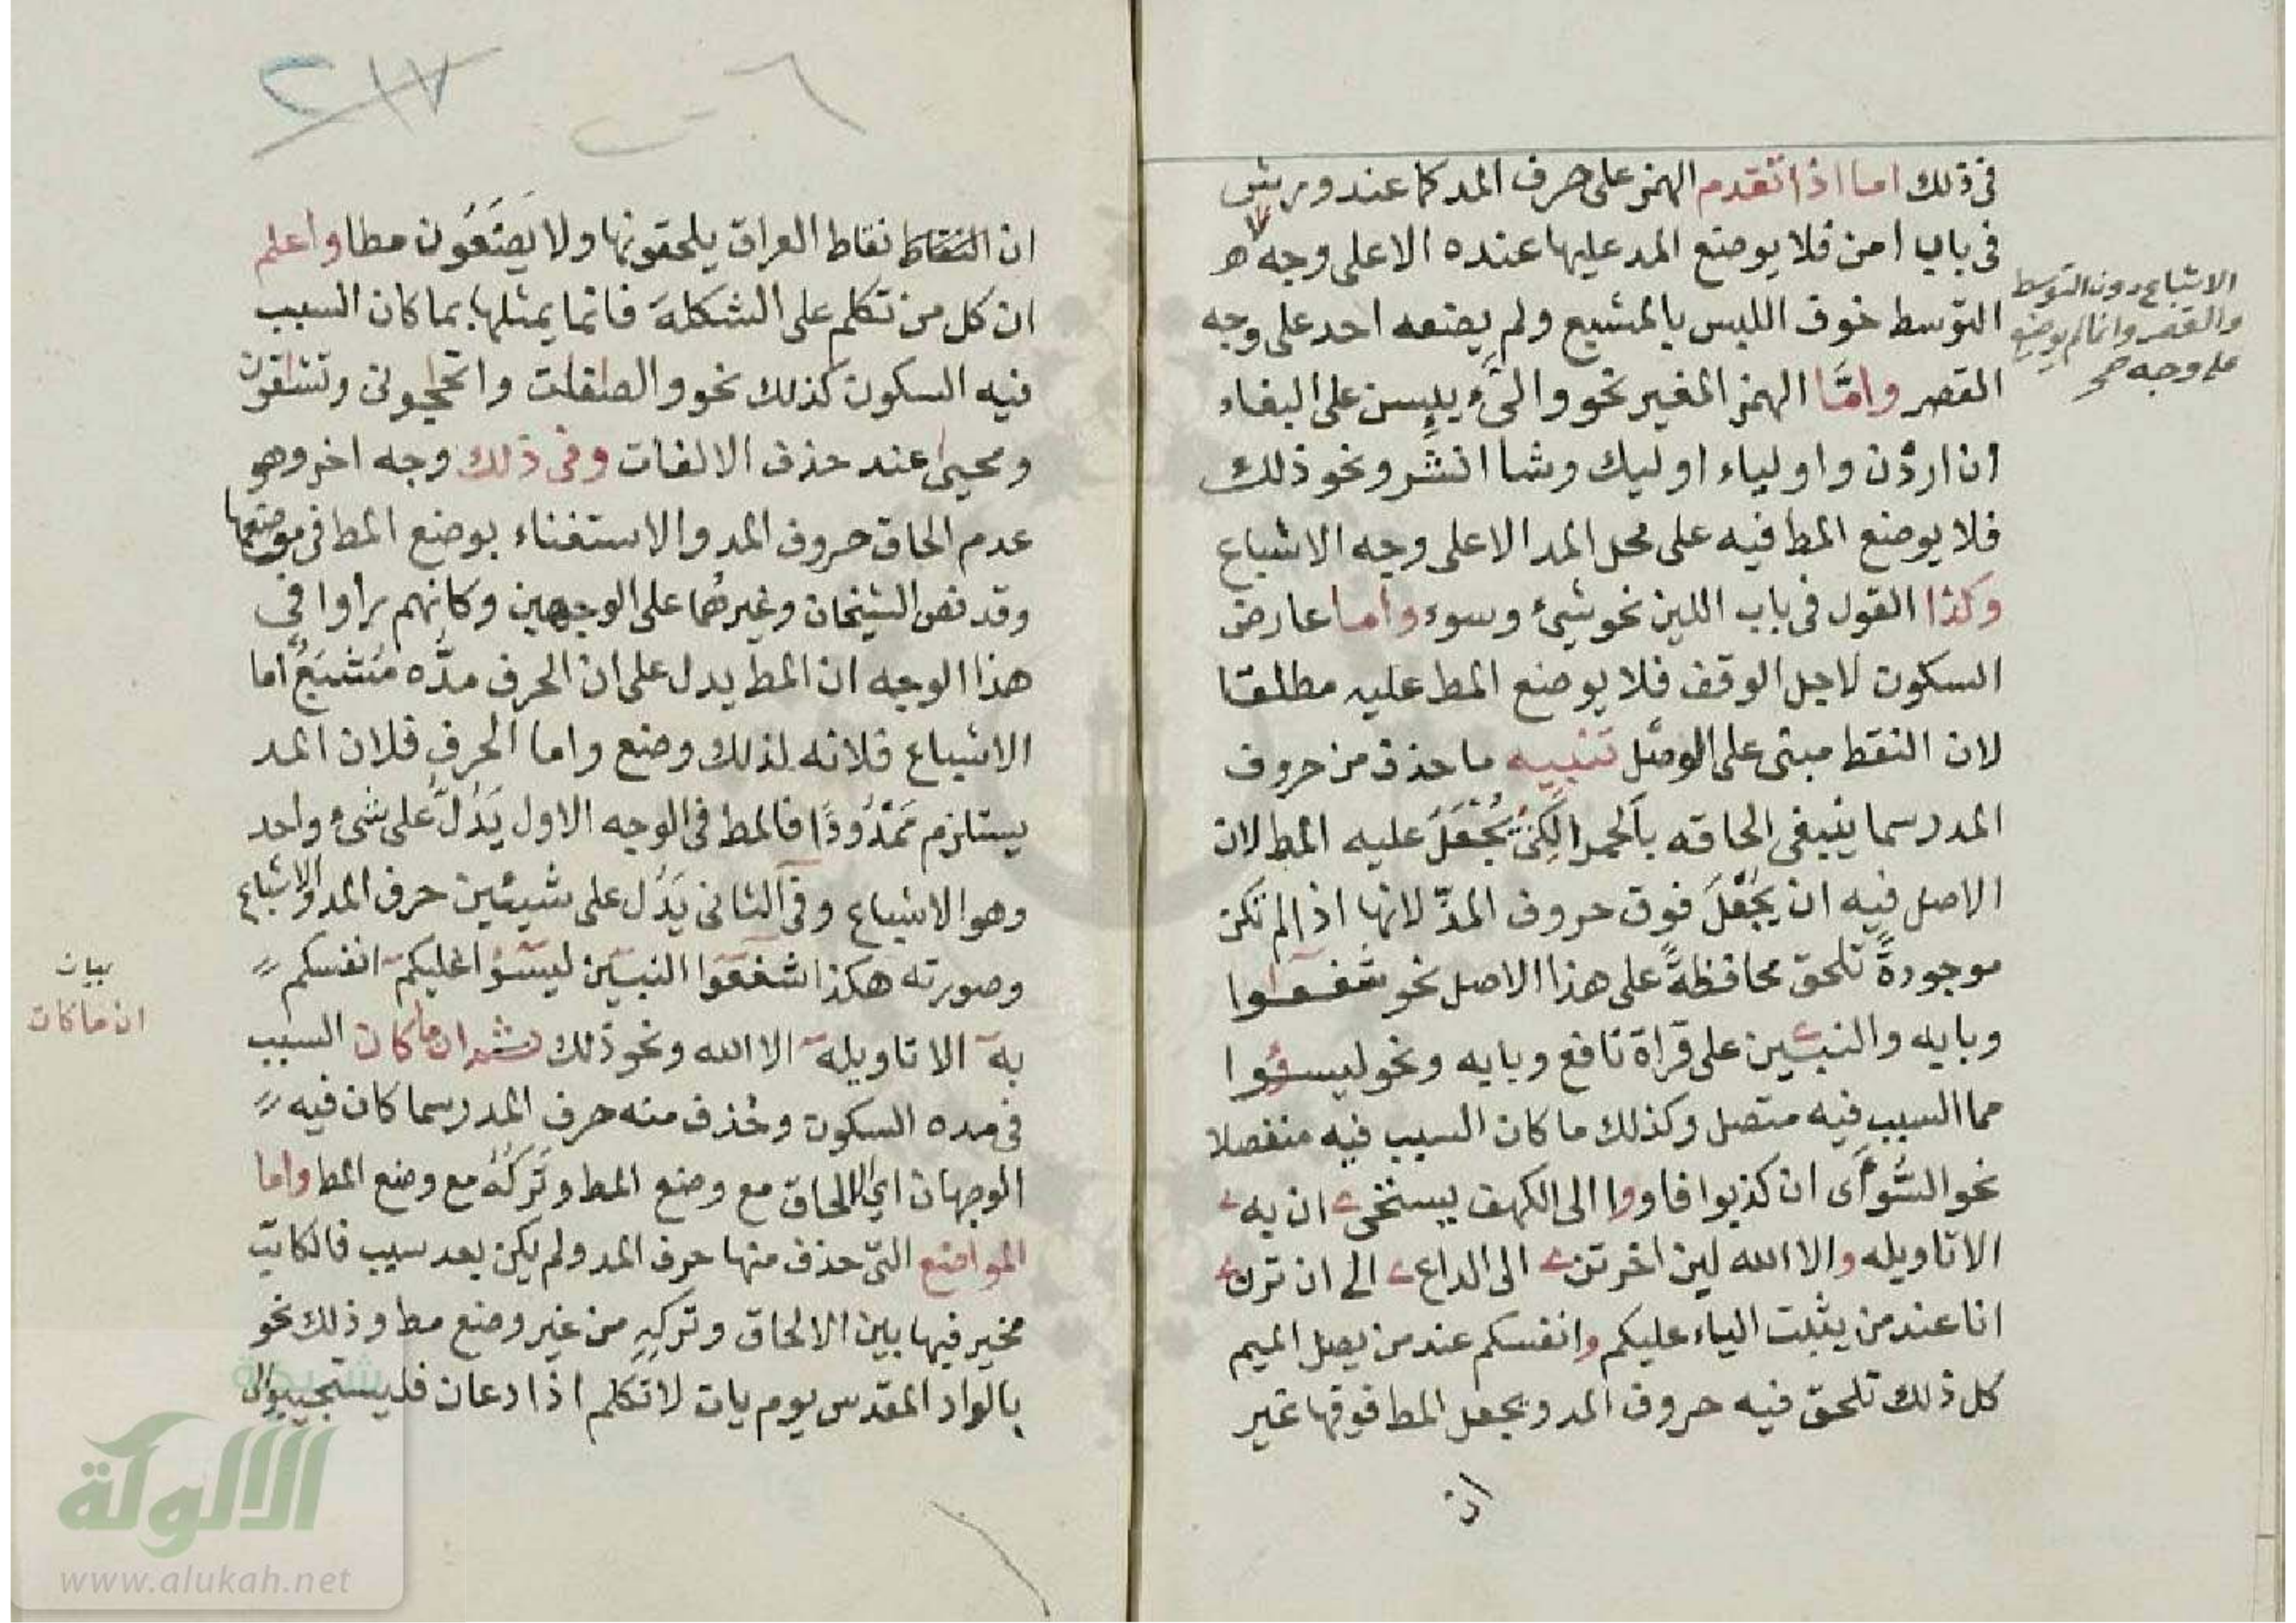 فى ذلك اما اذا تقدم الهمز على حرف المد كما عند ورش
فى باب امن فلا يوضع المد عليها عنده الا على وجه
الاشباع دون التوسط
والقصر وانما لم يوضع
على وجه صح
التوسط خوف اللبس بالمشبع ولم يضعه احد على وجه
القصر وامّا الهمز المغير نحو والىٰء يئسن على البغاء
ان اردن واولياء اوليك وشا انشر ونحو ذلك
فلا يوضع المط فيه على محل المد الا على وجه الاشباع
وكذا القول فى باب اللين نحو شىء وسوء واما عارض
السكون لاجل الوقف فلا يوضع المط عليه مطلقا
لان النقط مبنى على الوصل تنبيه ما حذف من حروف
المد رسما ينبغى الحاقه بالحمرا لكى يُجْعَلَ عليه المط لان
الاصل فيه ان يُجْعَلَ فوق حروف المدّ لانها اذا لم تكن
موجودةً تلحق محافظةً على هذا الاصل نحو شفعوا
وبابه والنبيين على قراة نافع وبابه ونحو ليسوءوا
مما السبب فيه متصل وكذلك ما كان السبب فيه منفصلا
نحو السُّوأى ان كذبوا فاووا الى الكهف يستحى ان به
الا تاويله والا الله لين اخرتن الى الداع الى ان ترن
انا عند من يثبت الياء عليكم وانفسكم عند من يصل الميم
كل ذلك تلحق فيه حروف المد ويجعل المط فوقها غير
ان
٢١٧
٦
ان النقاط نقاط العراق يلحقونها ولا يَضَعُون مطا واعلم
ان كل من تكلم على الشكلة فانما يمثلها بما كان السبب
فيه السكون كذلك نحو والصفات واتحجونى وتشقون
ومحيى عند حذف الالفات وفى ذلك وجه اخر وهو
عدم الحاق حروف المد والاستغناء بوضع المط فى موضعها
وقد نص الشيخان وغيرهما على الوجهين وكانهم راوا فى
هذا الوجه ان المط يدل على ان الحرف مدّه مُشْبَعٌ اما
الاشباع فلانه لذلك وضع واما الحرف فلان المد
يستلزم مَمْدُودًا فالمط فى الوجه الاول يَدُلُّ على شىء واحد
وهو الاشباع وفى الثانى يَدُل على شيئين حرف المد والاشباع
وصورته هكذا شفعوا النبين ليسوا عليكم انفسكم
به الا تاويله الا الله ونحو ذلك ثم ان ما كان السبب
بيان
ان ما كان
فى مده السكون وحُذف منه حرف المد رسما كان فيه
الوجهان اى الالحاق مع وضع المط وتَرْكُهُ مع وضع المط واما
المواضع التى حذف منها حرف المد ولم يكن بعد سبب فالكاتب
مخير فيها بين الالحاق وتركِهِ من غير وضع مط وذلك نحو
بالواد المقدس يوم يات لا تكلم اذا دعان فليستجيبوا لى
الألوكة
www.alukah.net